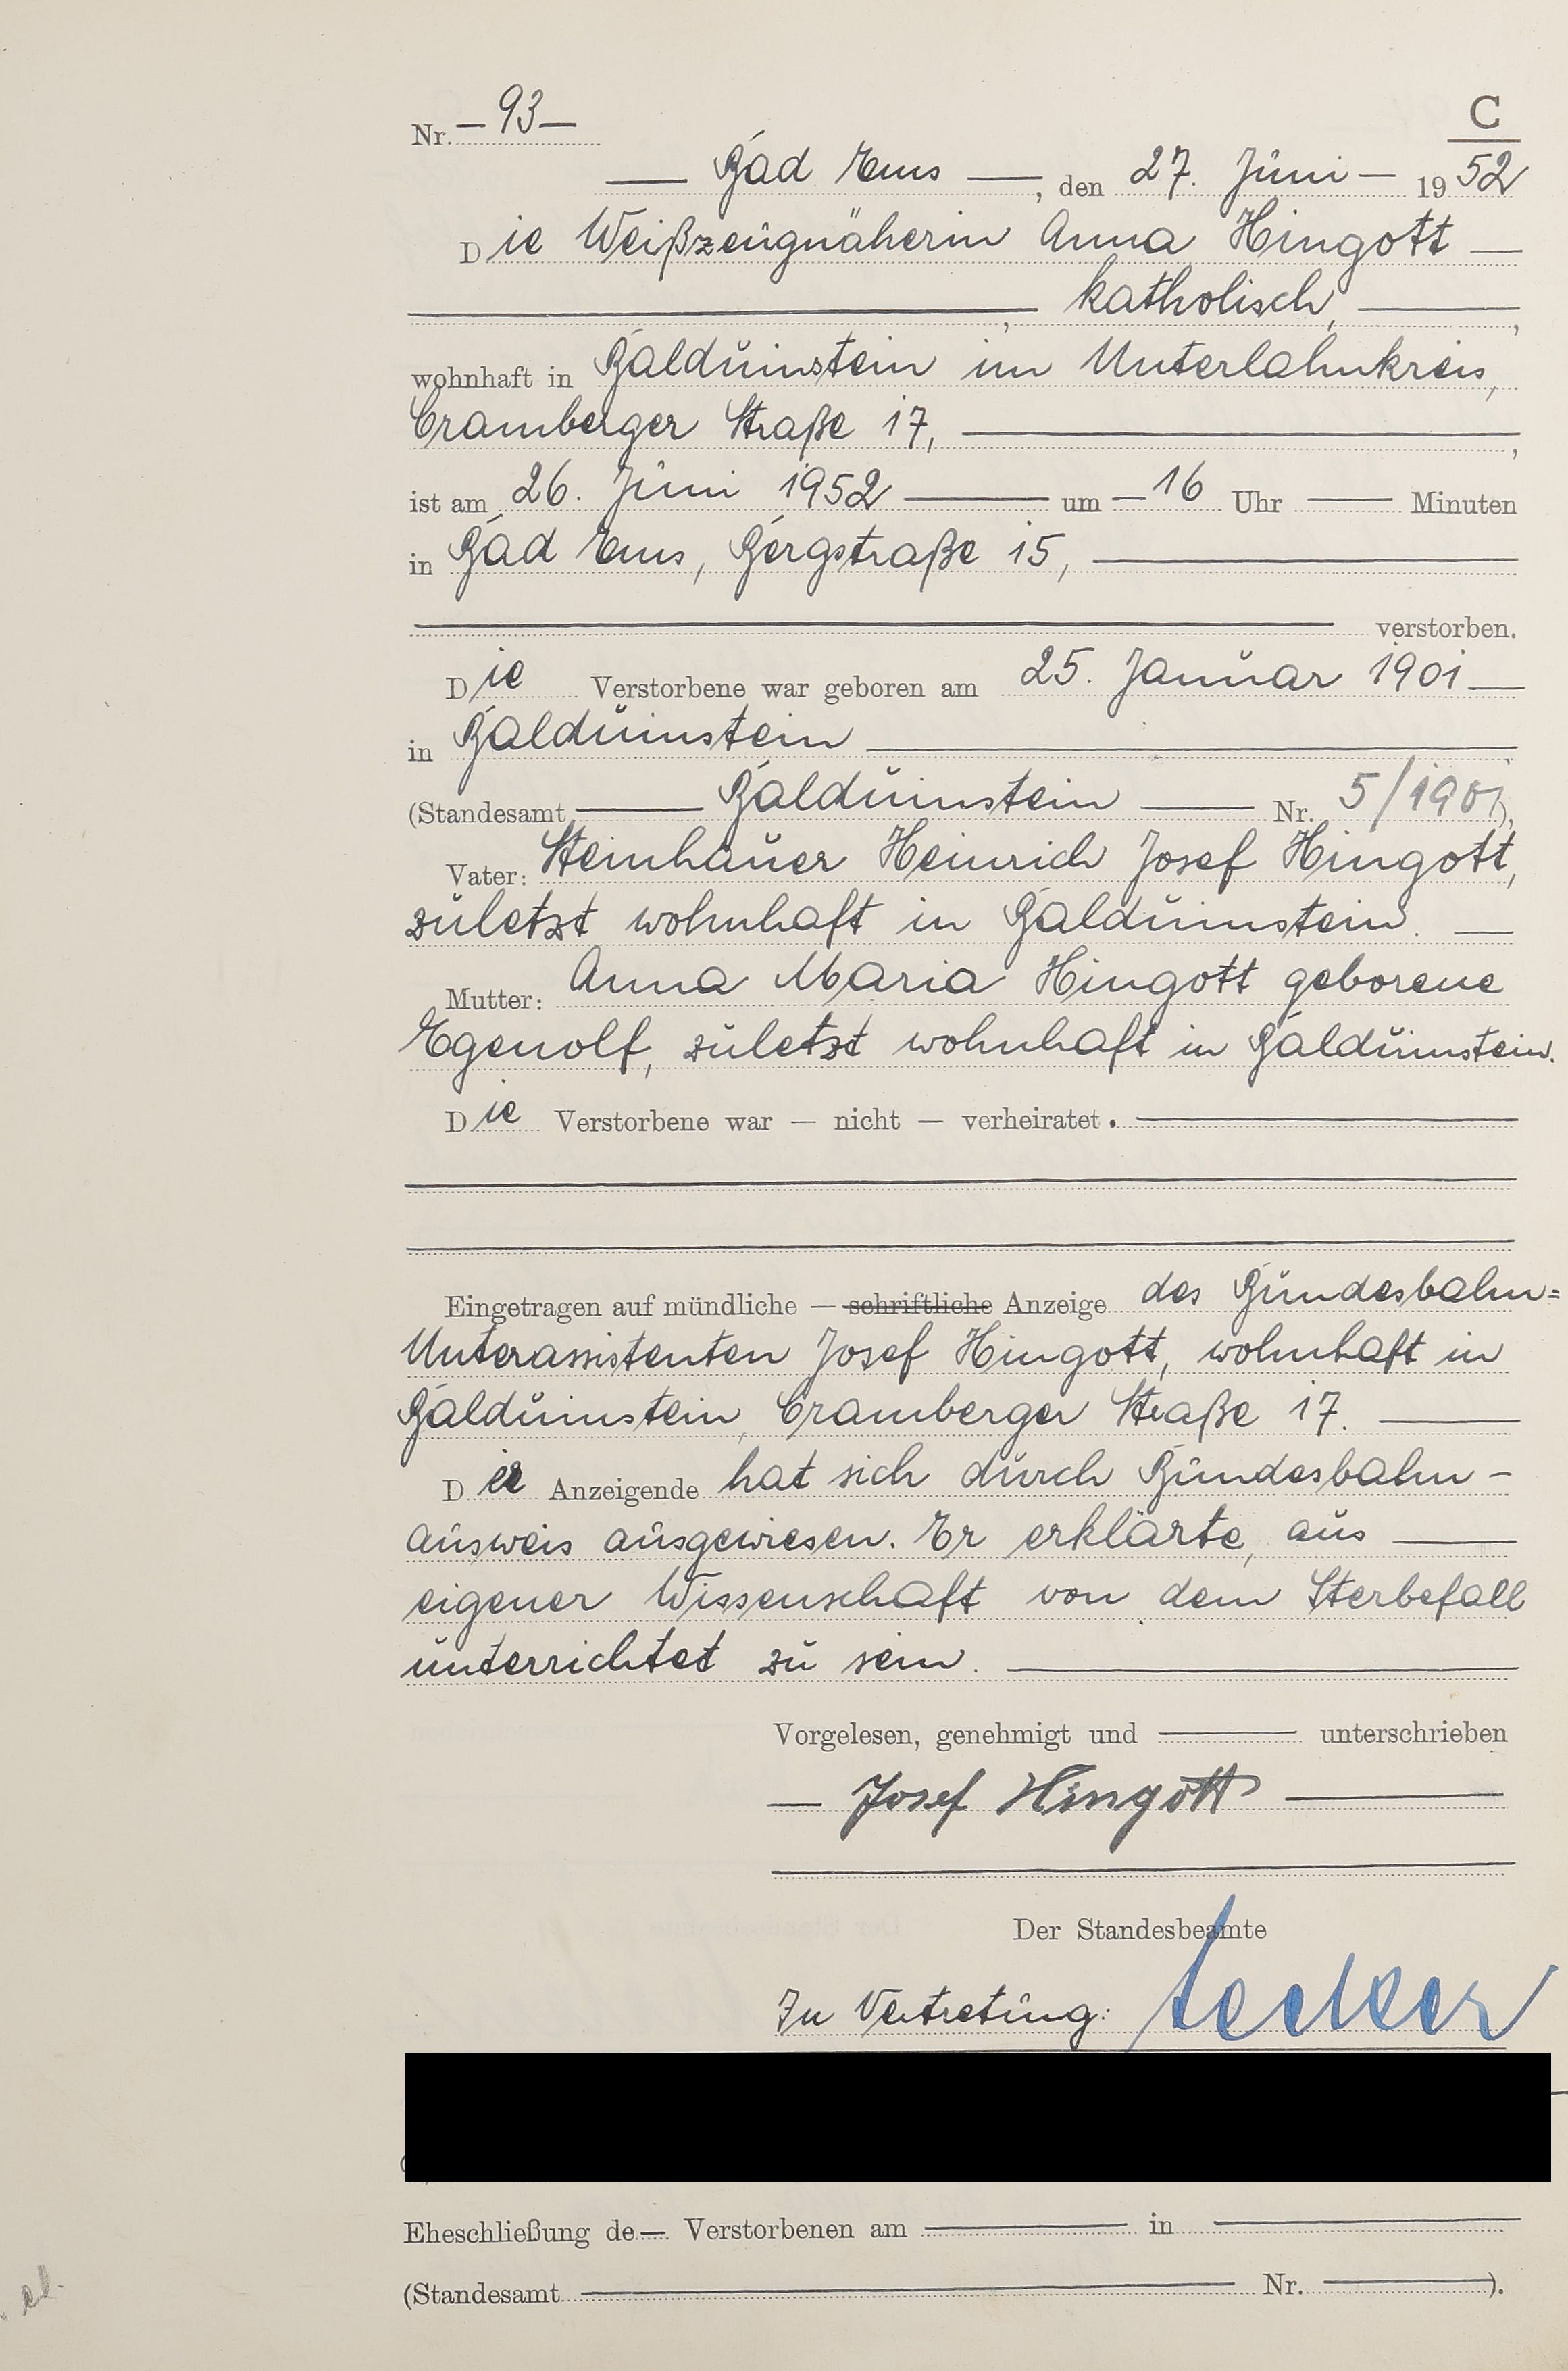 Nr. — 93 —
C
— Bad Ems —, den 27. Juni — 1952
Die Weißzeugnäherin Anna Hingott —
—, katholisch, —,
wohnhaft in Balduinstein im Unterlahnkreis,
Cramberger Straße 17, —,
ist am 26. Juni 1952 — um — 16 Uhr — Minuten
in Bad Ems, Bergstraße 15, —
— verstorben.
Die Verstorbene war geboren am 25. Januar 1901 —
in Balduinstein —
(Standesamt — Balduinstein — Nr. 5/1901),
Vater: Steinhauer Heinrich Josef Hingott,
zuletzt wohnhaft in Balduinstein. —
Mutter: Anna Maria Hingott geborene
Egenolf, zuletzt wohnhaft in Balduinstein.
Die Verstorbene war — nicht — verheiratet. —
Eingetragen auf mündliche — schriftliche Anzeige des Bundesbahn=
Unterassistenten Josef Hingott, wohnhaft in
Balduinstein, Cramberger Straße 17. —
Der Anzeigende hat sich durch Bundesbahn-
ausweis ausgewiesen. Er erklärte, aus —
eigener Wissenschaft von dem Sterbefall
unterrichtet zu sein. —
Vorgelesen, genehmigt und — unterschrieben
— Josef Hingott —
Der Standesbeamte
In Vertretung:
Eheschließung de — Verstorbenen am — in —
(Standesamt — Nr. —).